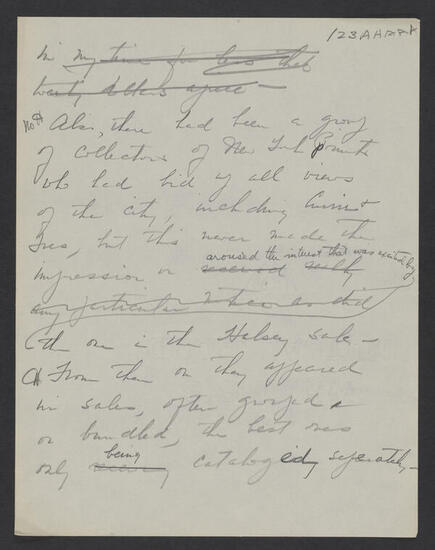 123AHRRX
in my time for less than
twenty dollars apiece —
No ¶ Also, there had been a group
of collectors of New York Prints
who had bid up all views
of the city, including Currier &
Ives, but this never made the
aroused the interest that was excited by
impression or received
any particular notice as did
the one in the Halsey sale —
¶ From then on they appeared
in sales, often grouped
or bundled, the best ones
being
only cataloged separately —